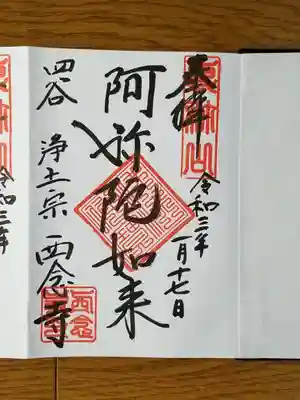 奉拝
令和三年
一月十七日
阿弥陀如来
四谷 浄土宗 西念寺
西念
令和三年